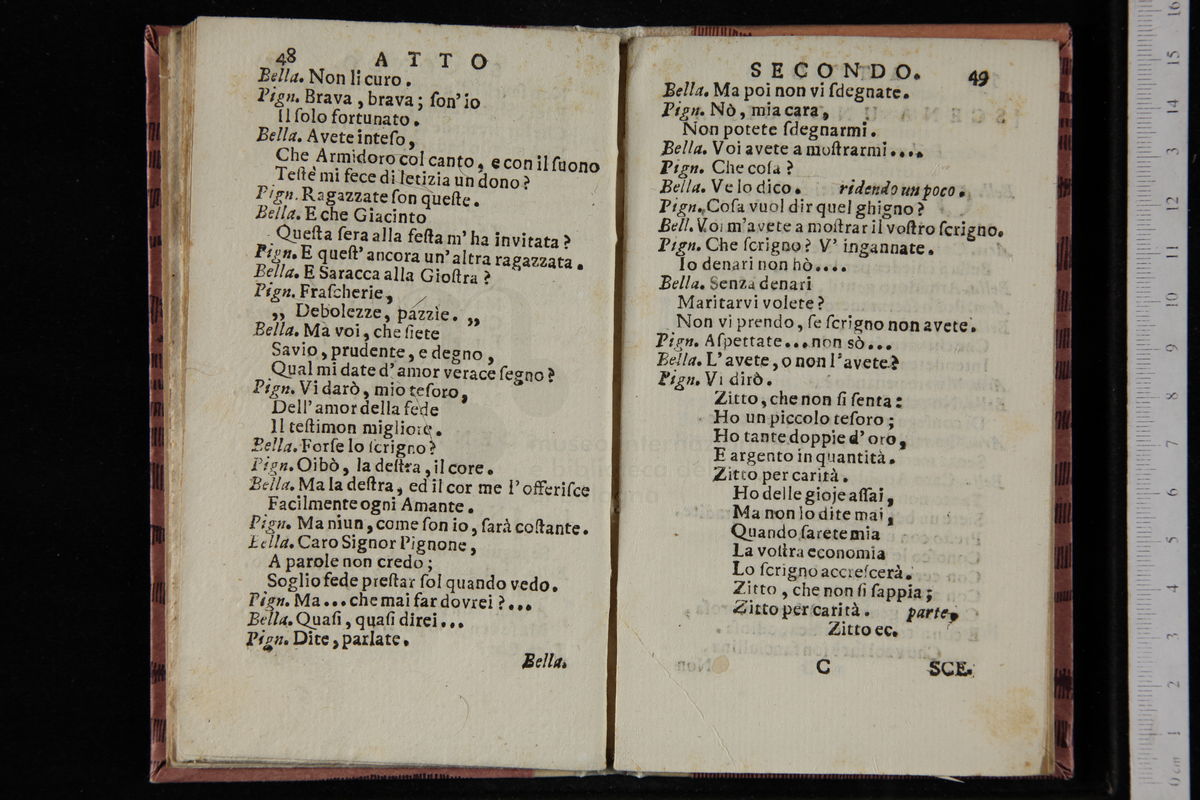 48 ATTO
Bella. Non li curo.
Pign. Brava, brava; ſon' io
Il ſolo fortunato.
Bella. Avete inteſo,
Che Armidoro col canto, e con il ſuono
Teſtè mi fece di letizia un dono?
Pign. Ragazzate ſon queſte.
Bella. E che Giacinto
Queſta ſera alla feſta m' ha invitata?
Pign. E queſt' ancora un' altra ragazzata.
Bella. E Saracca alla Gioſtra?
Pign. Fraſcherie,
„ Debolezze, pazzìe. „
Bella. Ma voi, che ſiete
Savio, prudente, e degno,
Qual mi date d' amor verace ſegno?
Pign. Vi darò, mio teſoro,
Dell' amor della fede
Il teſtimon migliore.
Bella. Forſe lo ſcrigno?
Pign. Oibò, la deſtra, il core.
Bella. Ma la deſtra, ed il cor me l' offeriſce
Facilmente ogni Amante.
Pign. Ma niun, come ſon io, ſarà coſtante.
Bella. Caro Signor Pignone,
A parole non credo;
Soglio fede preſtar ſol quando vedo.
Pign. Ma... che mai far dovrei?...
Bella. Quaſi, quaſi direi...
Pign. Dite, parlate.
Bella.
SECONDO. 49
Bella. Ma poi non vi ſdegnate.
Pign. Nò, mia cara,
Non potete ſdegnarmi.
Bella. Voi avete a moſtrarmi....
Pign. Che coſa?
Bella. Ve lo dico. ridendo un poco.
Pign. Coſa vuol dir quel ghigno?
Bell. Voi m'avete a moſtrar il voſtro ſcrigno.
Pign. Che ſcrigno? V' ingannate.
Io denari non hò....
Bella. Senza denari
Maritarvi volete?
Non vi prendo, ſe ſcrigno non avete.
Pign. Aſpettate... non sò...
Bella. L' avete, o non l' avete?
Pign. Vi dirò.
Zitto, che non ſi ſenta:
Ho un piccolo teſoro;
Ho tante doppie d' oro,
E argento in quantità.
Zitto per carità.
Ho delle gioje aſſai,
Ma non lo dite mai,
Quando ſarete mia
La voſtra economia
Lo ſcrigno accreſcerà.
Zitto, che non ſi ſappia;
Zitto per carità. parte,
Zitto ec.
C SCE.